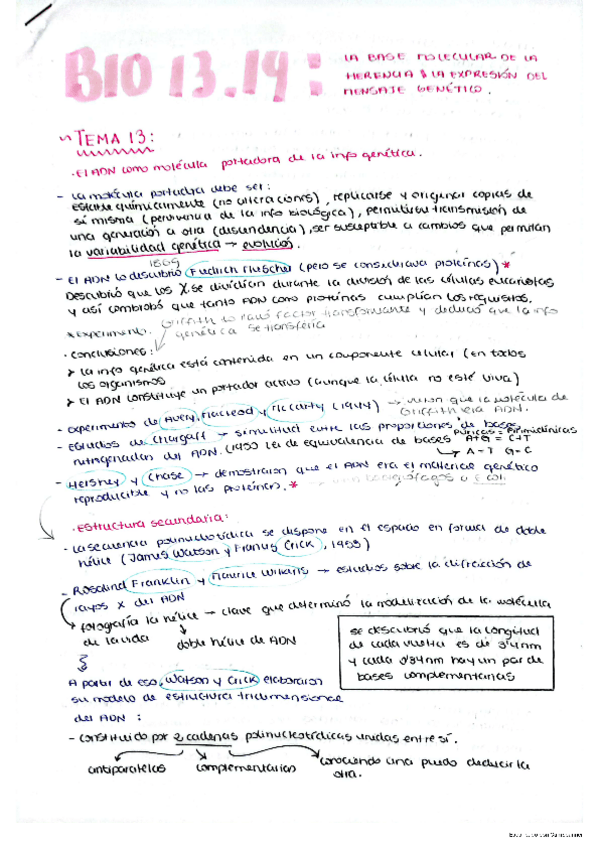 BIO 13.14:
LA BASE MOLECULAR DE LA
HERENCIA Y LA EXPRESIÓN DEL
MENSAJE GENÉTICO.
~ TEMA 13:
· El ADN como molécula portadora de la info genética.
- La molécula portadora debe ser:
estable químicamente (no alteraciones), replicarse y originar copias de
sí misma (pervivencia de la info biológica), permitir su transmisión de
una generación a otra (descendencia), ser susceptible a cambios que permitan
la variabilidad genética → evolución.
1869
- El ADN lo descubrió Fiedrich Miescher (pero se consideraba proteínas) *
Descubrió que los X se dividían durante la división de las células eucariotas
y así comprobó que tanto ADN como proteínas cumplían los requisitos.
* experiment. Griffith to factor transformante y dedució que la info
genética se transfería
· Conclusiones:
> La info genética está contenida en un componente celular (en todos
los organismos
> El ADN constituye un portador activo (aunque la célula no esté viva)
- experimentos de Avery, Macleod y McCarty (1944) → vieron que la molécula de
Griffith era ADN.
- Estudios de Chargaff → similitud entre las proporciones de bases
nitrogenadas del ADN. (1950 Ley de equivalencia de bases
Púricas = Pirimidínicas
A+G = C+T
A-T G-C
- Hershey y Chase → demostraron que el ADN era el material genético
reproducible y no las proteínas. * bacteriófagos E. coli
· Estructura secundaria:
- La secuencia polinucleotídica se dispone en el espacio en forma de doble
hélice (James Watson y Francis Crick, 1953)
- Rosalind Franklin y Maurice Wilkins → estudios sobre la difracción de
rayos X del ADN
fotografía la hélice → clave que determinó la modelización de la molécula
de la vida
doble hélice de ADN
se describió que la longitud
de cada vuelta es de 3'4nm
y cada 0'34nm hay un par de
bases complementarias
A partir de eso, Watson y Crick elaboraron
su modelo de estructura tridimensional
del ADN :
- Constituido por 2 cadenas polinucleotídicas unidas entre sí.
antiparalelas complementarias conociendo una puedo deducir la
otra.